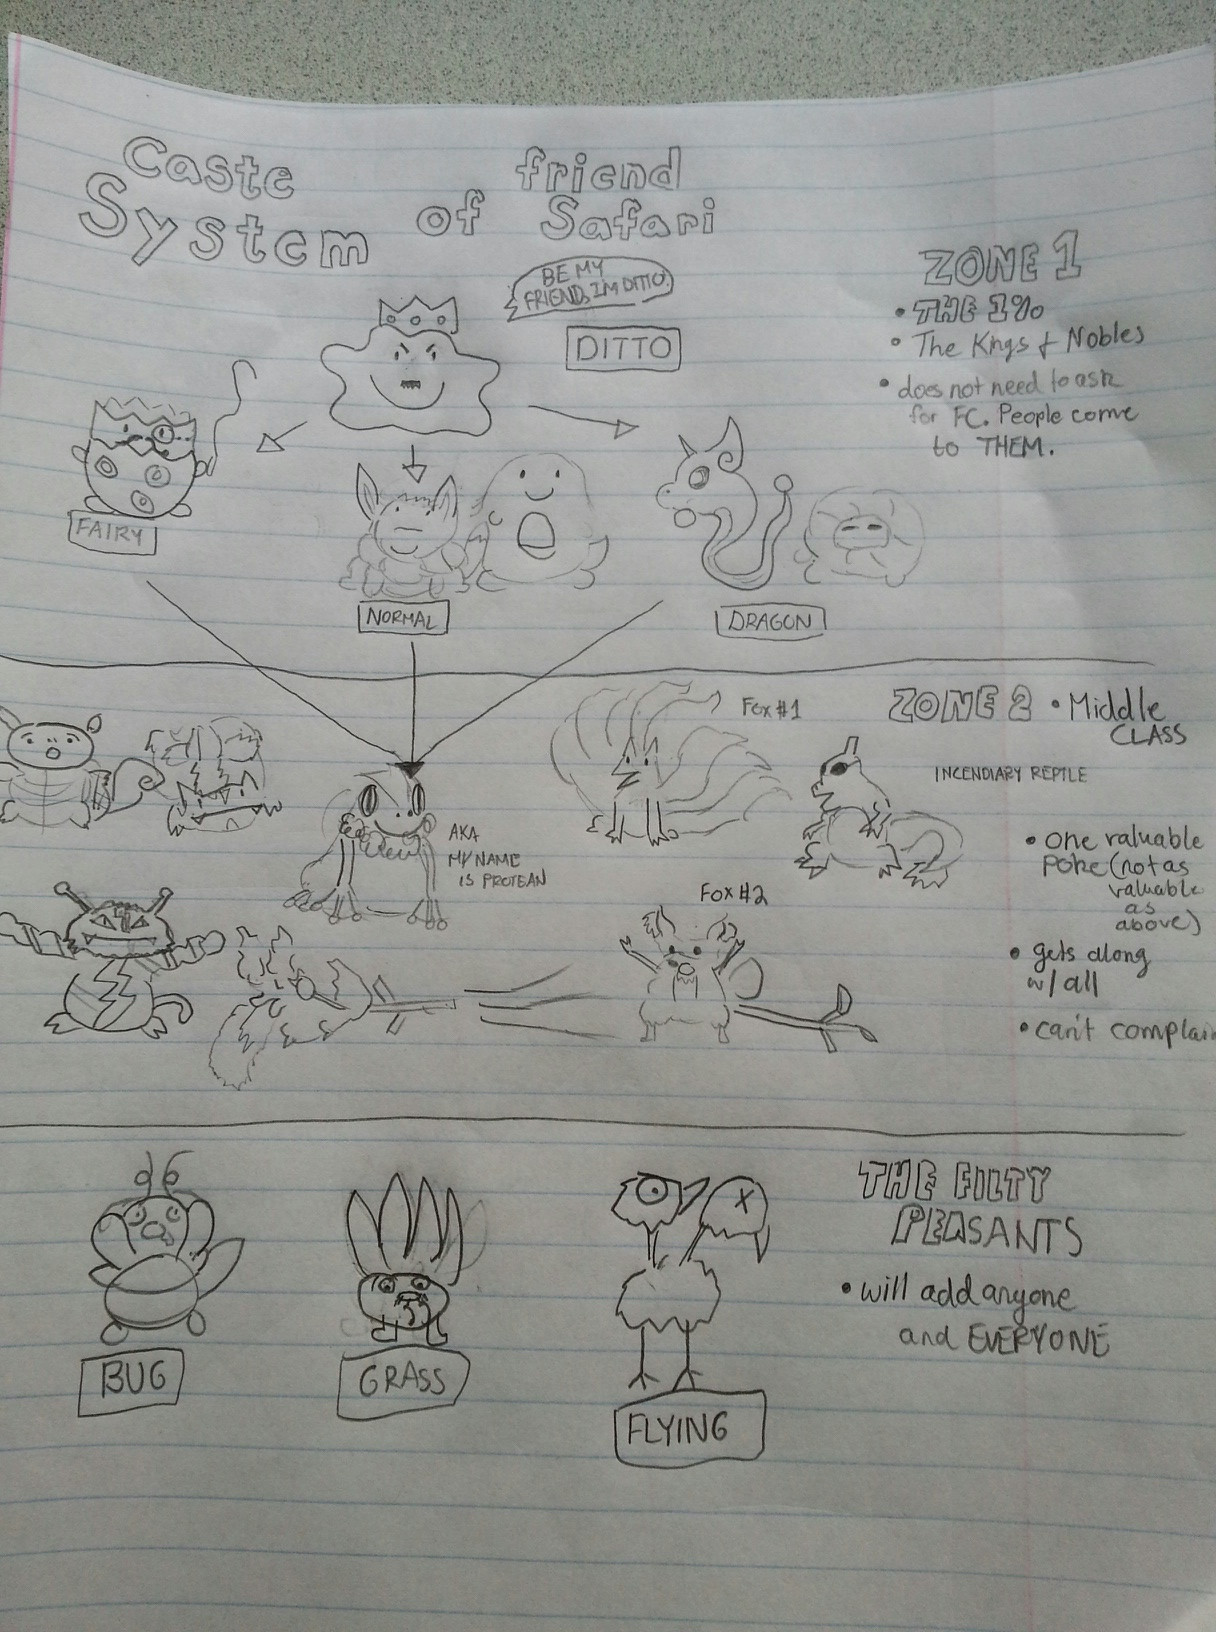 Caste
System of friend
Safari
BE MY
FRIEND, I'M DITTO.
DITTO
ZONE 1
• THE 1%
• The Kings & Nobles
• does not need to ask
for FC. People come
to THEM.
FAIRY
NORMAL
DRAGON
ZONE 2 • Middle
CLASS
FOX #1
INCENDIARY REPTILE
AKA
MY NAME
IS PROTEAN
• one valuable
poke (not as
valuable
as
above)
FOX #2
• gets along
w/ all
• can't complain
THE FILTY
PEASANTS
• will add anyone
and EVERYONE
BUG
GRASS
FLYING